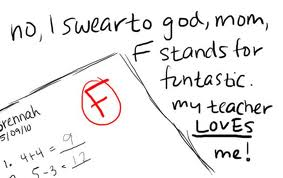 no, I swear to god, mom,
F stands for
funtastic.
my teacher
LOVES
me!
F
Brennah
5/09/10
1. 4+4= 9
5-3= 12